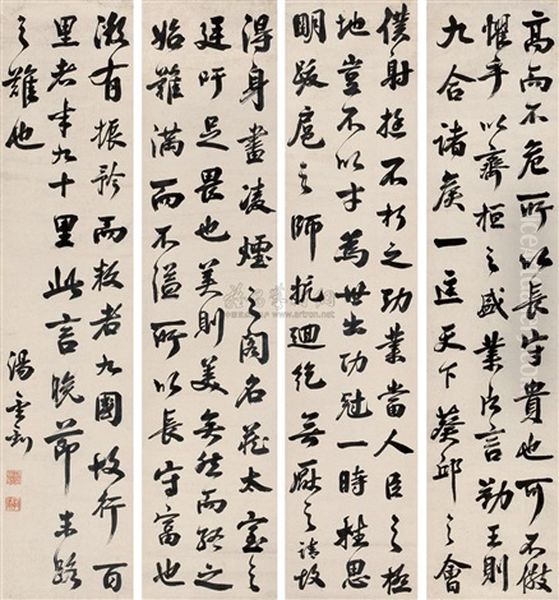 高而不危所以長守貴也可不儆
懼乎以齊桓之盛業片言勤王則
九合諸侯一匡天下葵邱之會
僕射挺不朽之功業當人臣之極
地豈不以才為世出功冠一時挫思
明跋扈之師抗迴紇無厭之請故
得身畫凌煙之閣名藏太室之
廷吁足畏也美則美矣然而終之
始難滿而不溢所以長守富也
微有振矜而叛者九國故行百
里者半九十里此言晚節末路
之難也
湯金釗
www.artron.net